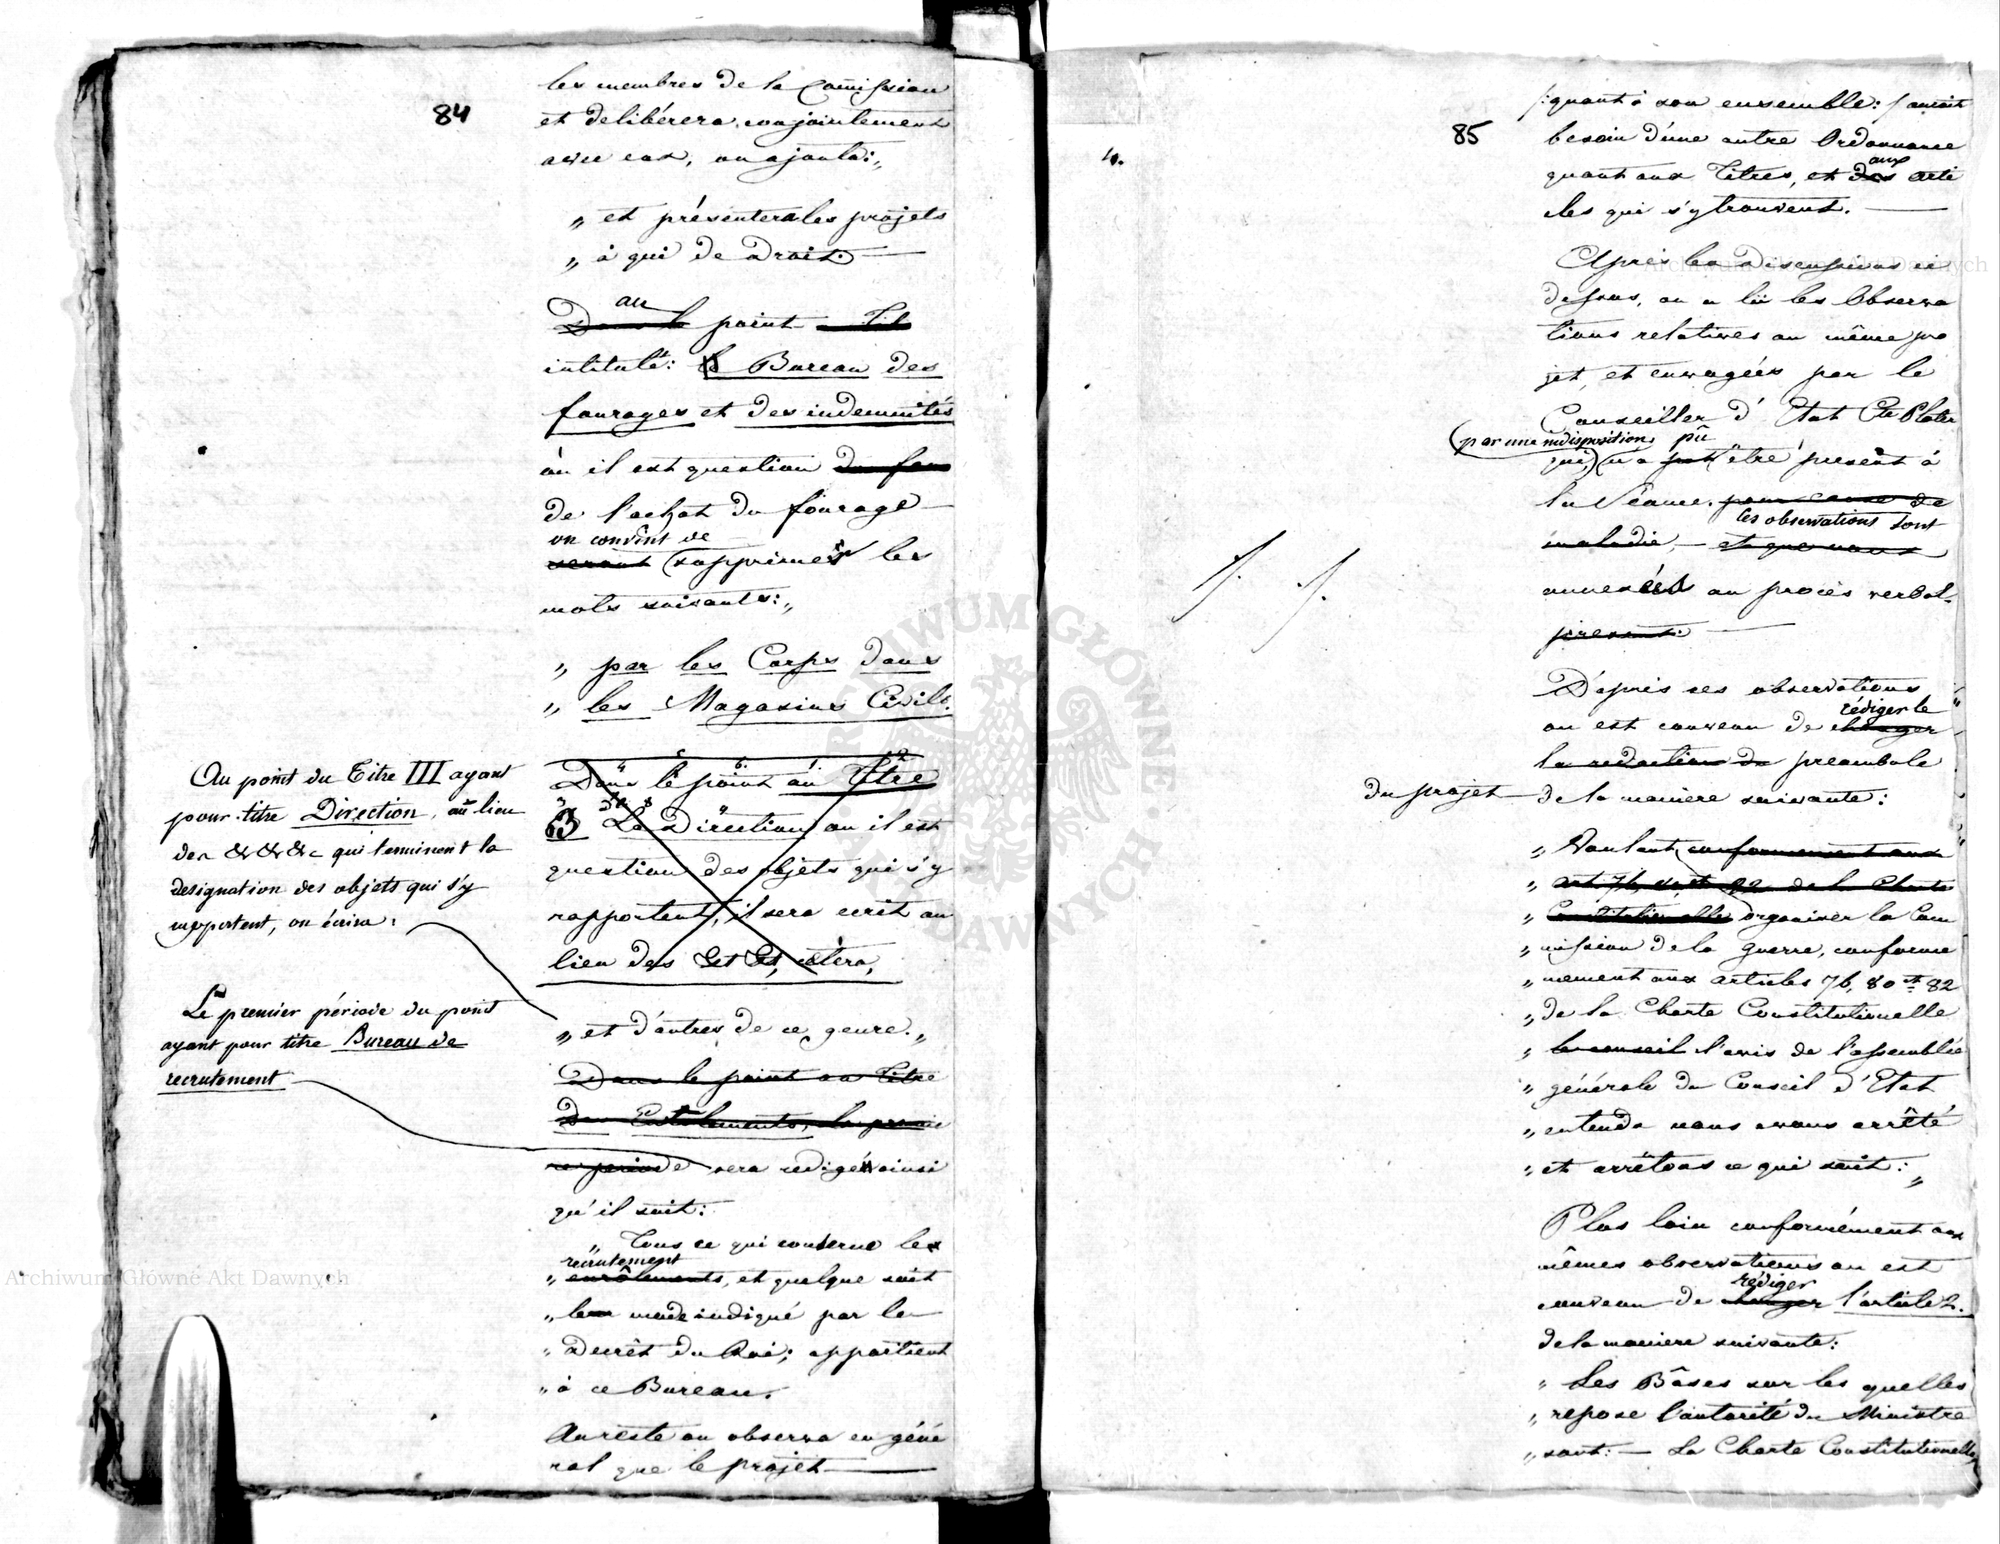 84
les membres de la Comission
et delibérera conjointement
avec eux, on ajouta:„
„ et présentera les projets
„ à qui de Droit.
au
Dans le point Tit
intitulé: le Bureau des
fourages et des indemnités
où il est question
de l'achat du fourage
on convint de
seront supprimer les
mots suivants:„
„ par les Corps dans
„ les Magasins Civils.
Au point du Titre III ayant
pour titre Direction, au lieu
des &c &c &c qui terminent la
designation des objets qui s'y
rapportent, on écrira:
Dans le point au Titre
3 La Direction ou il est
question des objets qui s'y
rapportent, il sera ecrit au
lieu des Et Et, cetera,
„ et d'autres de ce genre.„
Le premier période du point
ayant pour titre Bureau de
recrutement
Dans le point au Titre
Des Enrôlements, la premie
re periode sera redigé ainsi
qu'il suit:
„ Tous ce qui concerne les
recrutement
„ enrôlements, et quelque soit
„ le mode indiqué par le
„ Decrêt du Roi; appartient
„ à ce Bureau.
Au reste on observa en géné
ral que le projet
85
4.
/:quant à son ensemble:/ auroit
besoin d'une autre Ordonnance
aux
quant aux Titres, et des arti
cles qui s'y trouvent.
Après les Discussions ci
dessus, on a lû les Observa
tions relatives au même pro
jet, et envoyées par le
Conseiller d'Etat Cte Plater
(par une indisposition) pû
qui, n'a pas être présent à
la Séance. pour cause de
les observations sont
maladie, et que nous
annexées au procès verbal.
present.
D'après ces observations
rédiger le
on est convenu de changer
la redaction du preambule
du projet de la maniere suivante:
„ Voulant conformement aux
„ art. 76, 80 et 82 de la Charte
„ Constitutionelle organiser la Com
„ mission de la guerre, conforme
„ mement aux articles 76, 80 et 82
„ de la Charte Constitutionnelle
„ le conseil l'avis de l'assemblée
„ générale du Conseil d'Etat
„ entendu nous avons arrêté
„ et arrêtons ce qui suit:„
Plus loin conformément aux
mêmes observations on est
rédiger
convenu de changer l'article 2.
de la maniere suivante:
„ Les Bâses sur les quelles
„ repose l'autorité du Ministre
„ sont: — La Charte Constitutionnelle
ARCHIWUM GŁÓWNE AKT DAWNYCH
Archiwum Główne Akt Dawnych
Archiwum Główne Akt Dawnych